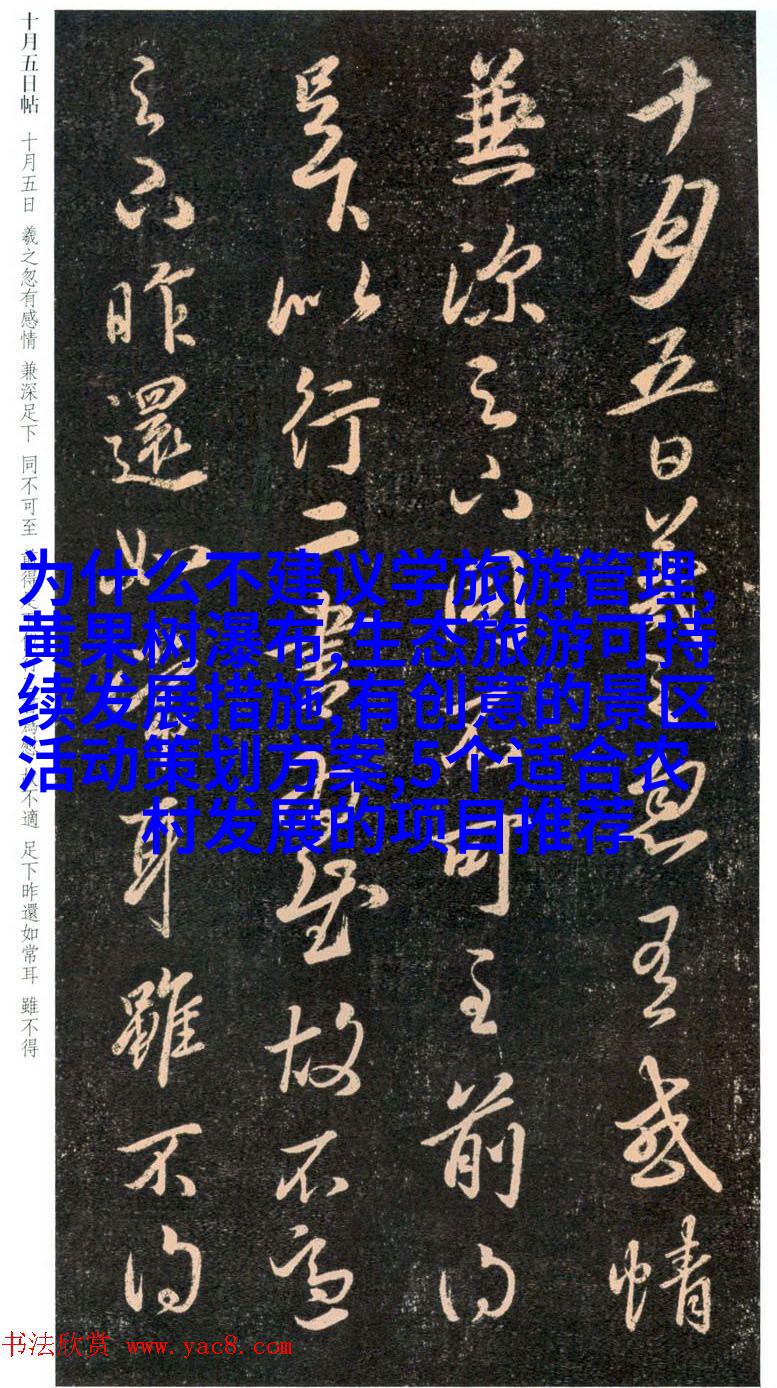 十月五日帖 十月五日 羲之忽有感情 兼深足下 同不可至 前得 不適 足下昨還如常耳 雖不得
十月五日羲之忽有感情
兼深足下同不可至前得
以行二書為慰故不適
足下昨還如常耳雖不得
为什么不建议学旅游管理,
黄果树瀑布,生态旅游可持
续发展措施,有创意的景区
活动策划方案,5个适合农
村发展的项目推荐
书法欣赏 www.yac8.com